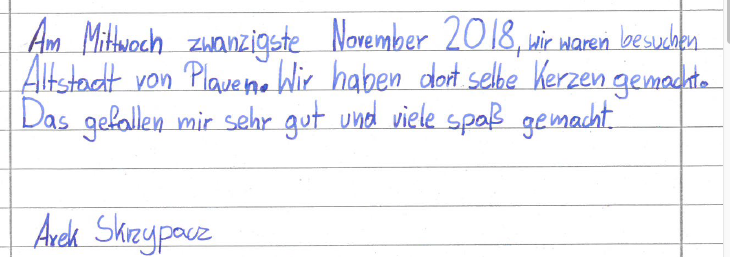 Am Mittwoch zwanzigste November 2018, wir waren besuchen
Altstadt von Plauen. Wir haben dort selbe Kerzen gemacht.
Das gefallen mir sehr gut und viele spaß gemacht.
Arek Skrzypacz